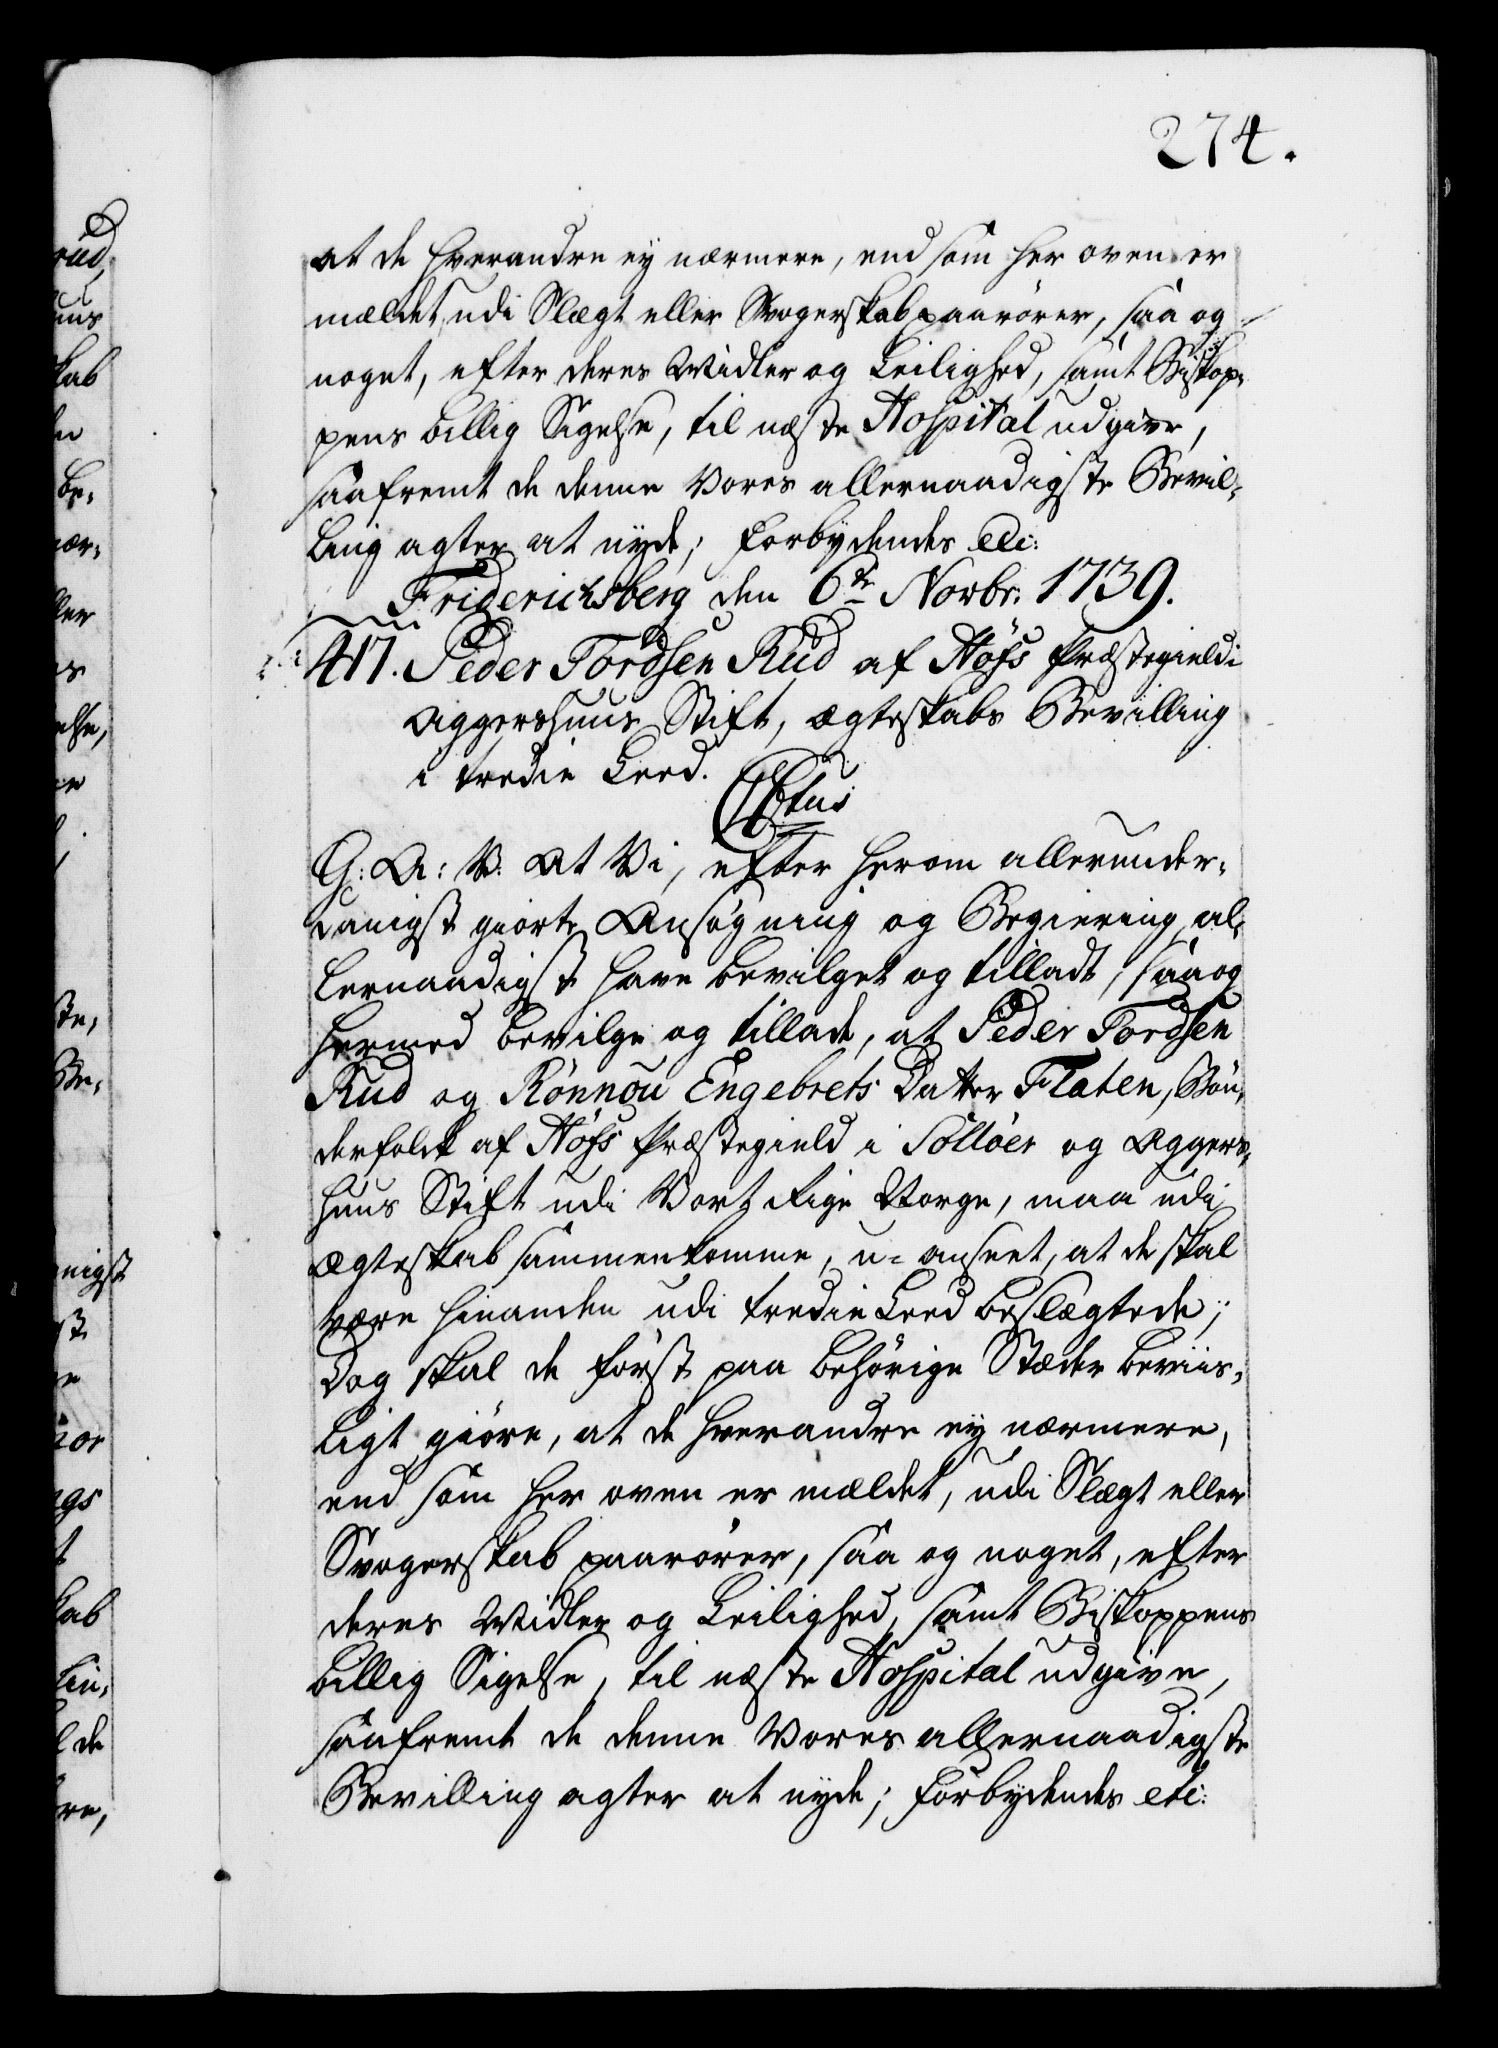 274.
at de hverandre ey nærmere, end som her oven er
mældet, udi Slægt eller Svogerskab paarörer, saa og
noget, efter deres Midler og Leilighed, samt Biskop-
pens billig Sigelse, til næste Hospital udgive,
saafremt de denne Vores allernaadigste Bevil-
ling agter at nyde; Forbydendes etc:
Friderichsberg den 6te Novbr: 1739.
417. Peder Tordsen Rud af Höfs Præstegield i
Aggershuus Stift, Ægteskabs Bevilling
i tredie Leed.
G: A: V. At Vi, efter herom allerunder-
danigst giorte Ansögning og Begiering, al-
lernaadigst have bevilget og tilladt, saa og
hermed bevilge og tillade, at Peder Tordsen
Rud og Rönnou Engebrets Datter Flaten, Bön-
derfolck af Höfs Præstegield i Sollöer og Aggers-
huus Stift udi Vort Rige Norge, maa udi
Ægteskab sammenkomme, u-anseet, at de skal
være hinanden udi tredie Leed beslægtede;
Dog skal de först paa behörige Stæder beviis-
ligt giöre, at de hverandre ey nærmere,
end som her oven er mældet, udi Slægt eller
Svogerskab paarörer, saa og noget, efter
deres Midler og Leilighed, samt Biskoppens
billig Sigelse, til næste Hospital udgive,
saafremt de denne Vores allernaadigste
Bevilling agter at nyde; Forbydendes etc: